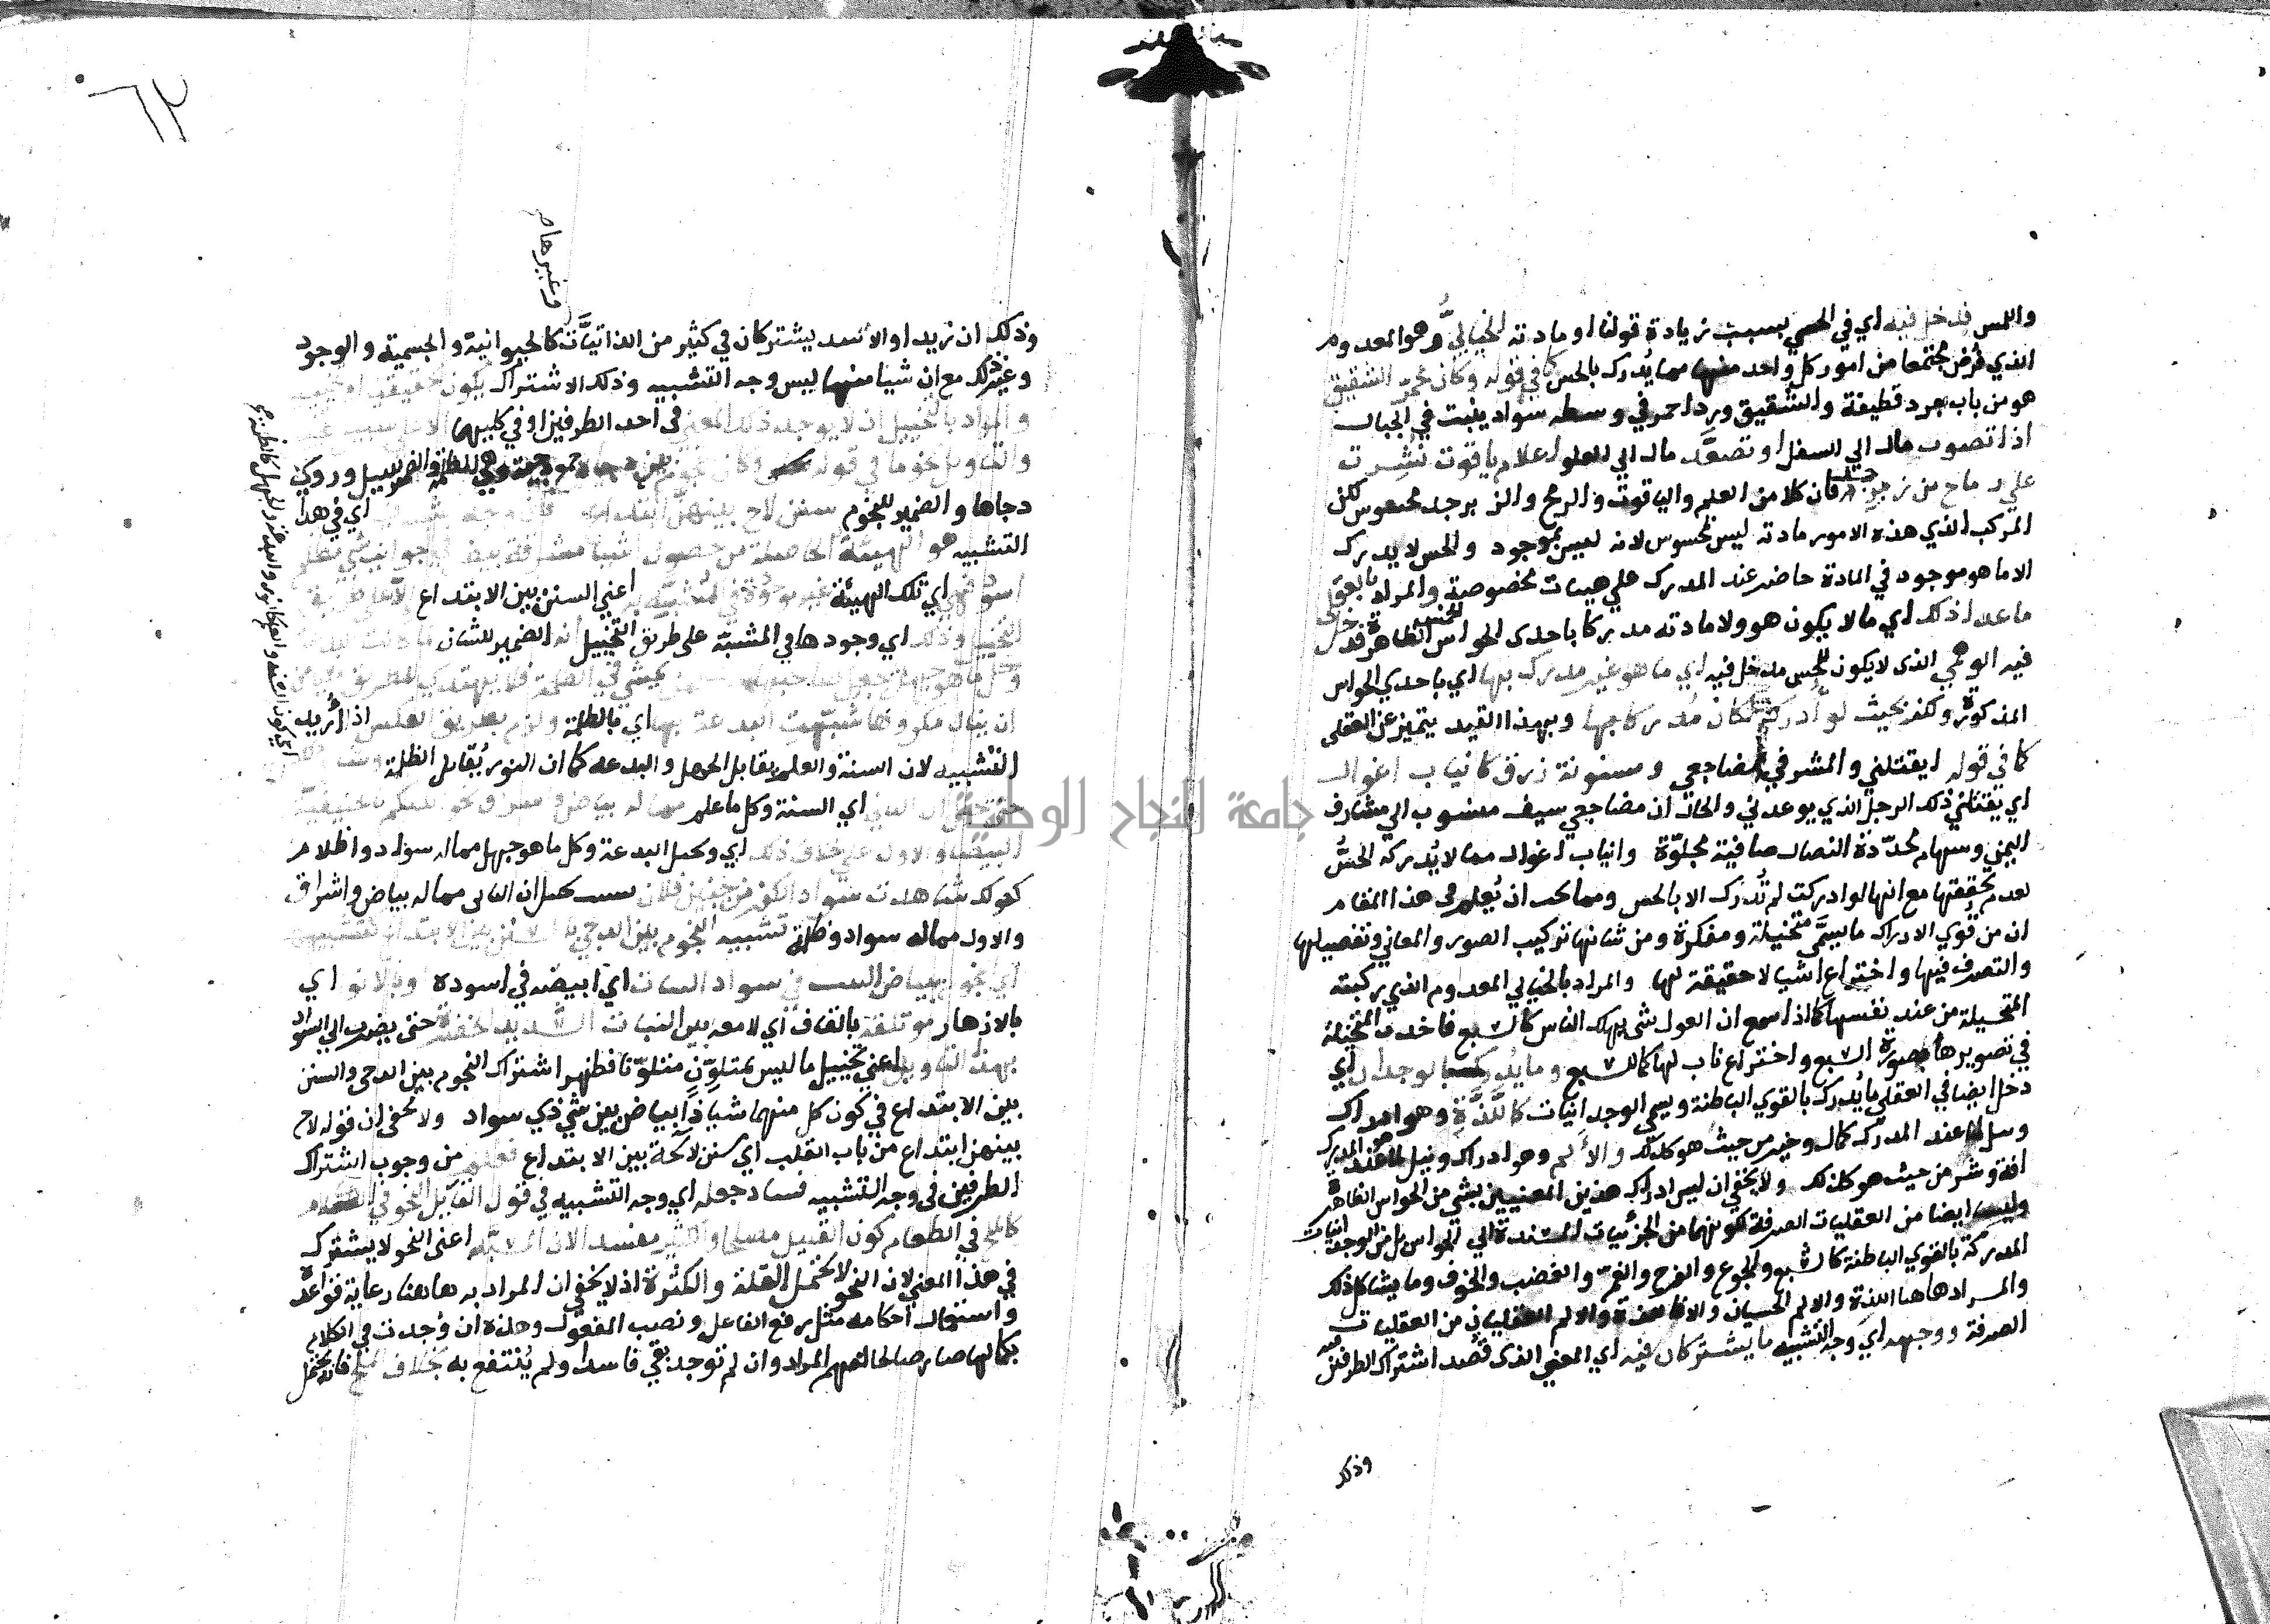 واللمس فدخل فيه اي في الحسي بسبب زيادة قولنا او مادته الخياليُّ وهو المعدوم
الذي فُرض مجتمعا من امور كل واحد منها مما يُدرك بالحس كما في قوله وكانّ محمرّ الشقيق
هو من باب جرد قطيفة والشقيق ورد احمر في وسطه سواد ينبت في الجبال
اذا تصوب مال الي السفل او تصعَّد مال الي العلو اعلام ياقوت نُشرت
علي رماح من زبرجد فان كلا من العلم والياقوت والرمح والزبرجد محسوس لكن
المركب الذي هذه الامور مادته ليس بمحسوس لانه ليس بموجود والحس لا يدرك
الا ما هو موجود في المادة حاضر عند المدرك علي هيات مخصوصة والمراد بالعقلي
ما عدا ذلك اي ما لا يكون هو ولا مادته مدركا باحدى الحواس الخمس الظاهرة فدخل
فيه الوهمي الذى لا يكون للحس مدخل فيه اي ما هو غير مدرك بها اي باحدي الحواس
المذكورة ولكنه بحيث لو ادرك لكان مدركا بها وبهذا القيد يتميز عن العقلى
كما في قوله ايقتلني والمشرفي مضاجعي ومسنونة زرق كانياب اغوال
اي يقتلني ذلك الرجل الذي يوعدني والحال ان مضاجعي سيف منسوب الي مشارف
اليمن وسهام محدّدة النصال صافية مجلوّة وانياب اغوال مما لا يُدركه الحسُّ
لعدم تحققها مع انها لو ادركت لم تُدرك الا بالحس ومما يجب ان يُعلم في هذا المقام
ان من قُوي الادراك ما يسمَّى متخيلة ومفكرة ومن شانها تركيب الصور والمعاني وتفصيلها
والتصرف فيها واختراع اشيا لا حقيقة لها والمراد بالخيالي المعدوم الذي ركبته
المتخيلة من عند نفسها كما اذا سمع ان الغول شي يهلك الناس كالسبع فاخذت المتخيلة
في تصويرها بصورة السبع واختراع ناب لها كما للسبع وما يدرك بالوجدان اي
دخل ايضا في العقلي ما يُدرك بالقوي الباطنة ويسمي الوجدانيات كاللَّذَّةِ وهو ادراك
ونيل لما عند المدرك كمال وخير من حيث هو كذلك والألم وهو ادراك ونيل لما عند المدرك
افة وشر من حيث هو كذلك ولا يخفي ان ليس ادراك هذين المعنيين بشي من الحواس الظاهرة
وليس ايضا من العقليات الصرفة لكونهما من الجزئيات المستندة الي الحواس بل من الوجدانيات
المدركة بالقوي الباطنة كالشبع والجوع والفرح والغم والغضب والخوف وما يشاكل ذلك
والمراد هاهنا اللذة والالم الحسيان والا فاللذة والالم العقليان من العقليات
الصرفة ووجهه اي وجه التشبيه ما يشتركان فيه اي المعني الذى قُصد اشتراك الطرفين فيه
وذلك
٦٢
وغيرها صح
وذلك ان زيدا والاسد يشتركان في كثير من الذاتيَّات كالحيوانية والجسمية والوجود
وغير ذلك مع ان شيا منها ليس وجه التشبيه وذلك الاشتراك يكون تحقيقيا او تخييليا
والمراد بالتخييل ان لا يوجد ذلك المعني في احد الطرفين او في كليهما الا علي سبيل
والتاويل نحو ما في قوله وكان النجوم بين دجاه جمع دجية وهي الظلمة والضمير لليل وروي
دجاها والضمير للنجوم سنن لاح بينهن ابتداع فان وجه الشبه اي في هذا
التشبيه هو الهيئة الحاصلة من حصول اشيا مشرقة بيض في جوانب شي مظلم
اسود فهي اي تلك الهيئة غير موجودة في المشبه به اعني السنن بين الابتداع الا علي طريق
التخييل وذلك اي وجودها في المشبه به على طريق التخييل انه الضمير للشان
وكل ما هو جهل تجعل صاحبها كمن يمشي في الظلمة فلا يهتدي للطريق
ان ينال مكروها شبّهت البدعة بها اي بالظلمة ولزم بطريق العكس اذا اُريد
التشبيه لان السنة والعلم يقابل الجهل والبدعة كما ان النور يُقابل الظلمة
حتي تخيل ان الثاني اي السنة وكل ما علم مما له بياض واشراق نحو اتيتكم بالحنيفية
البيضا والاول علي خلاف ذلك اي وتخيل البدعة وكل ما هو جهل مما له سواد واظلام
كقولك شاهدت سواد الكفر من جبين فلان بسبب تخيل ان الثاني مما له بياض واشراق
والاول مما له سواد وظلمة تشبيه النجوم بين الدجي بالسنن بين الابتداع كتشبيهها
اي نجوم ببياض الشيب في سواد الشباب اي ابيضه في اسوده وبالانوار اي
بالازهار موتلقة بالقاف اي لامعة بين النبات الشديد الخضرة حتى يضرب الي السواد
بهذا التاويل اعني تخييل ما ليس بمتلوِّنٍ متلوّنا فظهر اشتراك النجوم بين الدجى والسنن
بين الابتداع في كون كل منهما شيا ذا بياض بين شي ذي سواد ولا يخفى ان قوله لاح
بينهن ابتداع من باب القلب اي سنن لائحة بين الابتداع فعلم من وجوب اشتراك
الطرفين في وجه التشبيه فساد جعله اي وجه التشبيه في قول القائل النحو في الكلام
كالملح في الطعام كون القليل مصلحا والكثير مفسدا لان المشبَّه اعنى النحو لا يشترك
في هذا المعني لان النحو لا يحتمل القلة والكثرة اذ لا يخفي ان المراد به هاهنا رعاية قواعده
واستعمال احكامه مثل رفع الفاعل ونصب المفعول وهذه ان وُجدت في الكلام
بكمالها صار صالحا لفهم المراد وان لم توجد بقي فاسدا ولم يُنتفع به بخلاف الملح فانه يحتمل
جامعة النجاح الوطنية